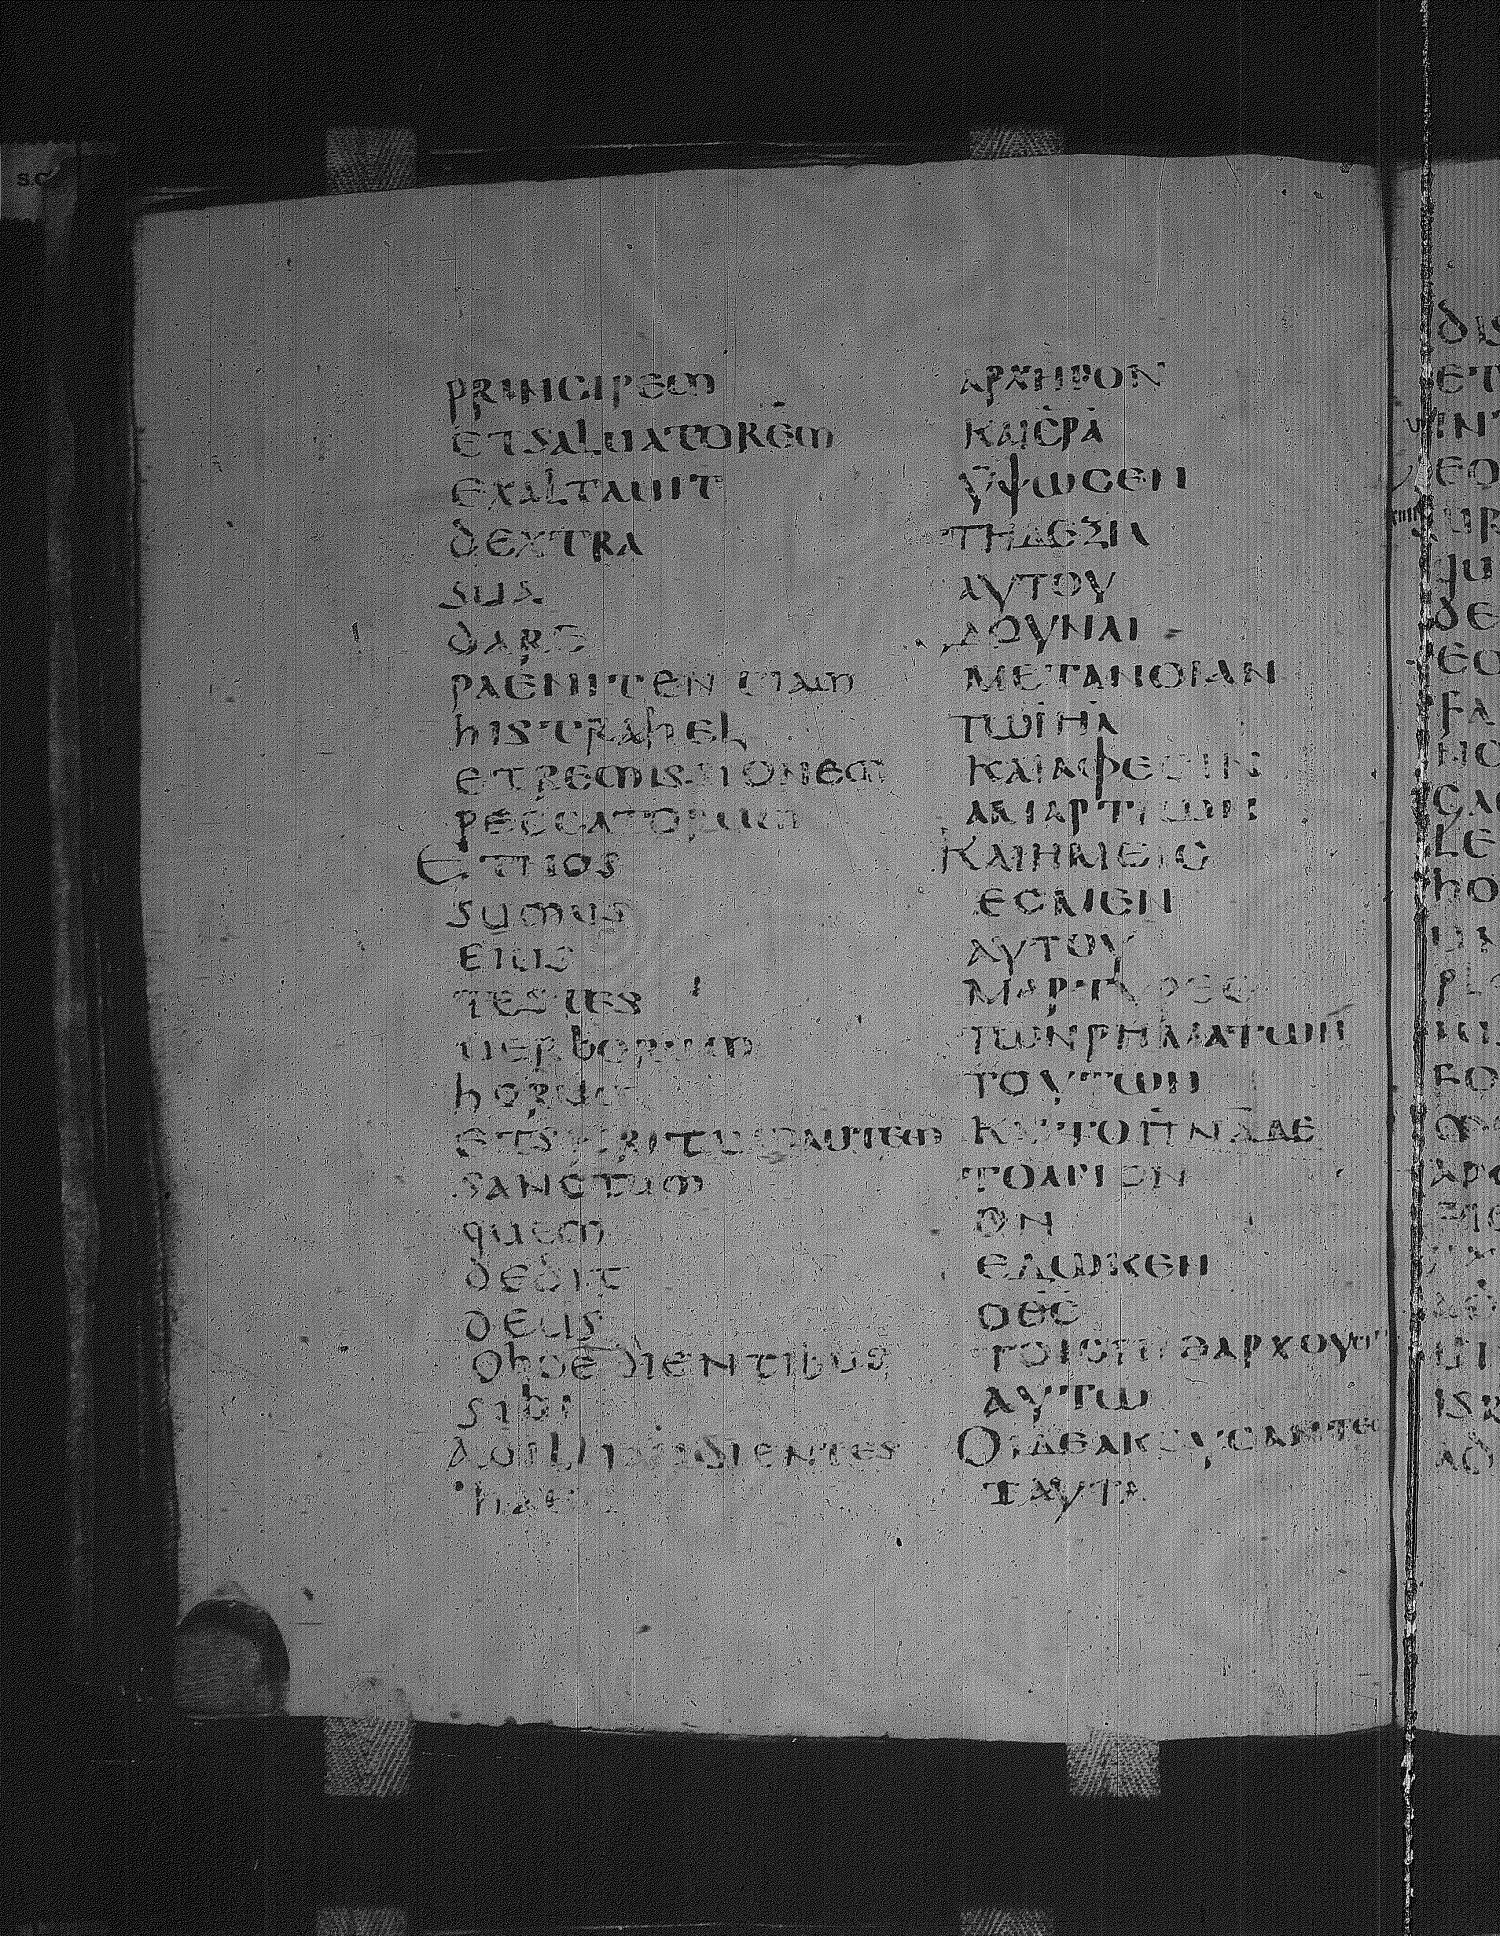 principem
etsaluatorem
exaltauit
dextra
sua
dare
paenitentiam
histrahel
etremissionem
peccatorum
Etnos
sumus
eius
testes
uerborum
horum
etspiritusautem
sanctum
quem
dedit
deus
oboedientibus
sibi
audientes
haec
ΑΡΧΗΓΟΝ
ΚΑΙCΡΑ
ΥΨΩCΕΝ
ΤΗΔΕΞΙΑ
ΑΥΤΟΥ
ΔΟΥΝΑΙ
ΜΕΤΑΝΟΙΑΝ
ΤΩΙΗΛ
ΚΑΙΑΦΕCΙΝ
ΑΜΑΡΤΙΩΝ
ΚΑΙΗΜΕΙC
ΕCΜΕΝ
ΑΥΤΟΥ
ΜΑΡΤΥΡΕC
ΤΩΝΡΗΜΑΤΩΝ
ΤΟΥΤΩΝ
ΤΟΠΝΑΔΕ
ΤΟΑΓΙΟΝ
ΟΝ
ΕΔΩΚΕΝ
ΟΘC
ΤΟΙCΠΙΘΑΡΧΟΥCΙ
ΑΥΤΩ
ΟΙΔΕΑΚΟΥCΑΝΤΕC
ΤΑΥΤΑ